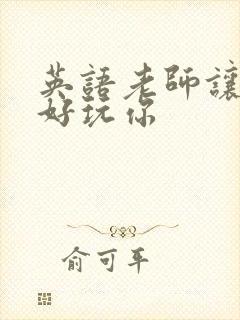 英語老師讓
好玩你
俞可平